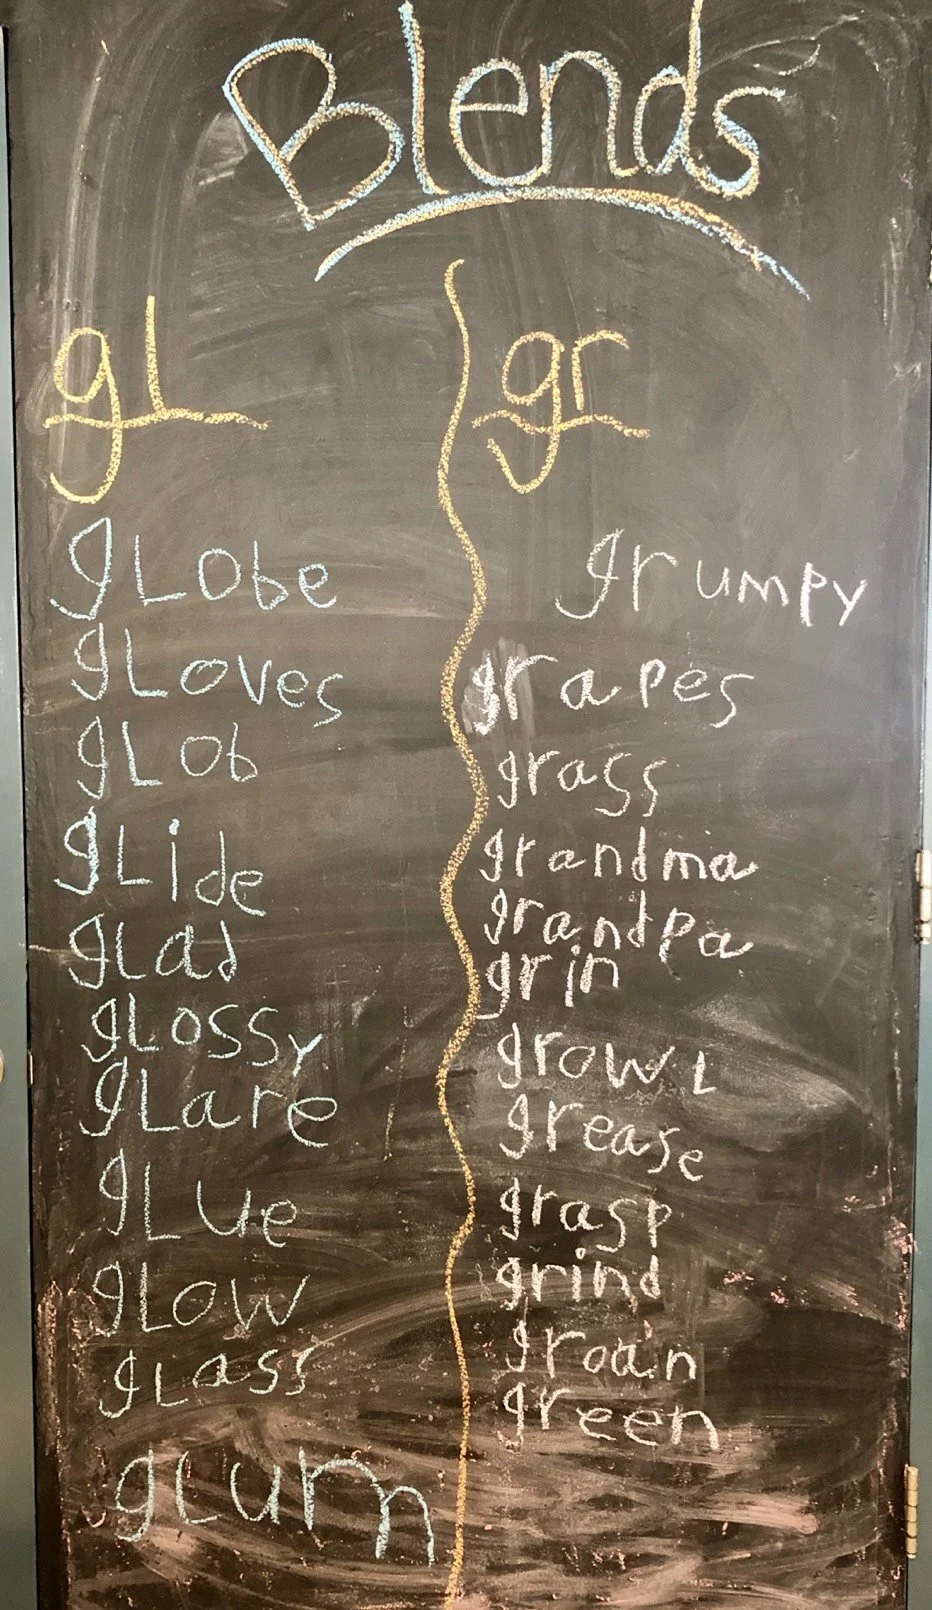 Blends
gl
gLobe
gLoves
gLob
gLide
gLad
gLossy
gLare
gLue
gLow
gLass
gLum
gr
grumpy
grapes
grass
grandma
grandpa
grin
growL
grease
grasp
grind
groan
green